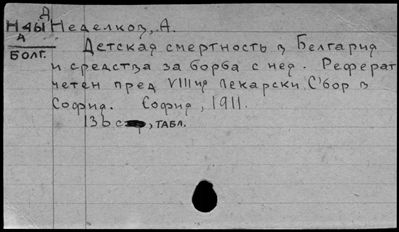 Н 48 Д Неделков, А.
Детская смертность в Белгария
БОЛГ. и средства за борба с нея. Реферат
четен пред VIIIия Лекарски Сбор в
София. София, 1911.
136 стр, ТАБЛ.